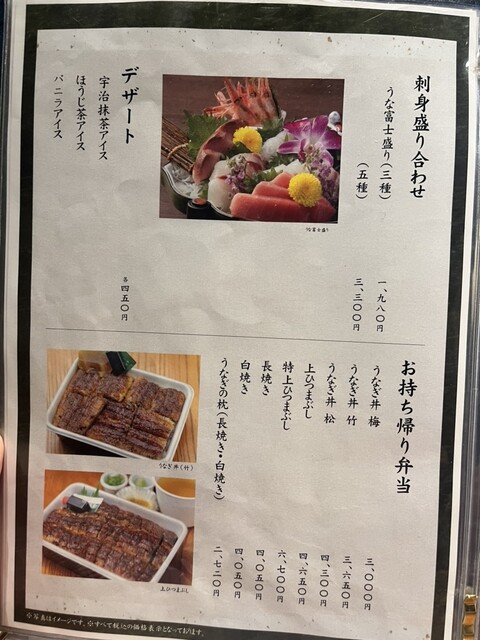 刺身盛り合わせ
うな富士盛り（三種） 一、九八〇円
（五種） 三、三〇〇円
うな富士盛り
デザート
宇治抹茶アイス
ほうじ茶アイス
バニラアイス
各四五〇円
お持ち帰り弁当
うなぎ丼 梅 三、〇〇〇円
うなぎ丼 竹 三、六五〇円
うなぎ丼 松 四、三〇〇円
上ひつまぶし 四、六五〇円
特上ひつまぶし 六、七〇〇円
長焼き 四、〇五〇円
白焼き 四、〇五〇円
うなぎの枕（長焼き・白焼き） 二、七二〇円
うなぎ丼（竹）
上ひつまぶし
※写真はイメージです。※すべて税込の価格表示となっております。